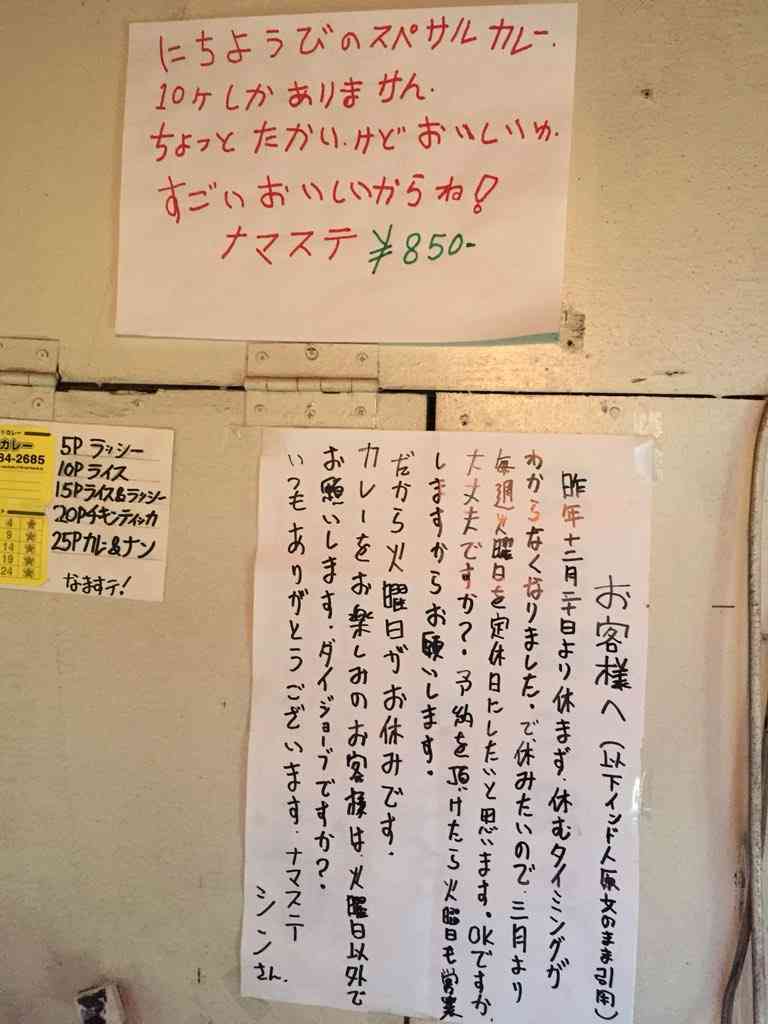 にちようびのスペサルカレー.
10ケしかありません.
ちょっとたかい.けどおいしいゆ.
すごいおいしいからね!
ナマステ ¥850-
カレー
34-2685
4
9
14
19
24
5P ラッシー
10P ライス
15P ライス&ラッシー
20P チキンティッカ
25P カレー&ナン
なますテ!
お客様へ(以下インド人原文のまま引用)
昨年十二月二十日より休まず、休むタイミングが
わからなくなりました。で、休みたいので、三月より
毎週火曜日を定休日にしたいと思います。OKですか、
大丈夫ですか?。予約を頂けたら火曜日も営業
しますからお願いします。
だから火曜日がお休みです.
カレーをお楽しみのお客様は、火曜日以外で
お願いします.ダイジョーブですか?
いつもありがとうございます.ナマステ
シンさん.